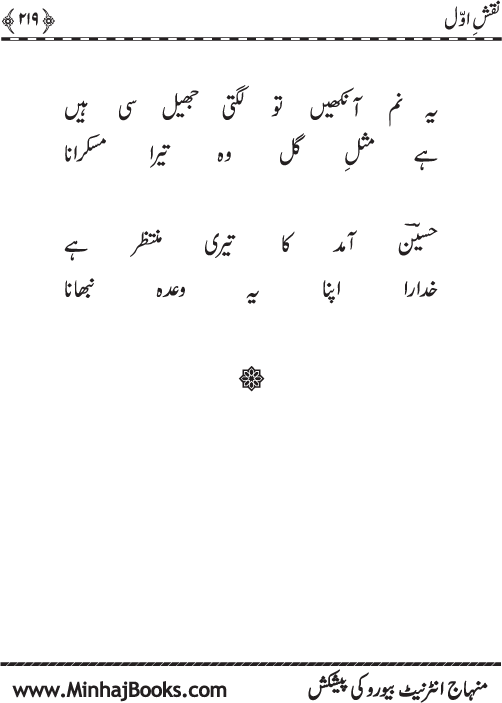 نقشِ اوّل
﴿۲۱۹﴾
یہ نم آنکھیں تو لگتی جھیل سی ہیں
ہے مثلِ گل وہ تیرا مسکرانا
حسینؔ آمد کا تیری منتظر ہے
خدارا اپنا یہ وعدہ نبھانا
منہاج انٹرنیٹ بیورو کی پیشکش
www.MinhajBooks.com